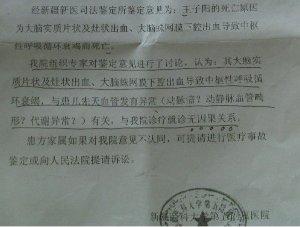 经新疆新医司法鉴定所鉴定意见为：王子阳的死亡原因
为大脑实质片状及灶状出血、大脑蛛网膜下腔出血导致中枢
性呼吸循环衰竭而死亡。
我院组织专家对鉴定意见进行了讨论，认为：其大脑实
质片状及灶状出血、大脑蛛网膜下腔出血导致中枢性呼吸循
环衰竭，与患儿先天血管发育异常（动脉瘤？动静脉血管畸
形？代谢异常？）有关，与我院诊疗就诊无因果关系。
患方家属如果对我院意见不认同，可提请进行医疗事故
鉴定或向人民法院提请诉讼。
新疆医科大学第 医院